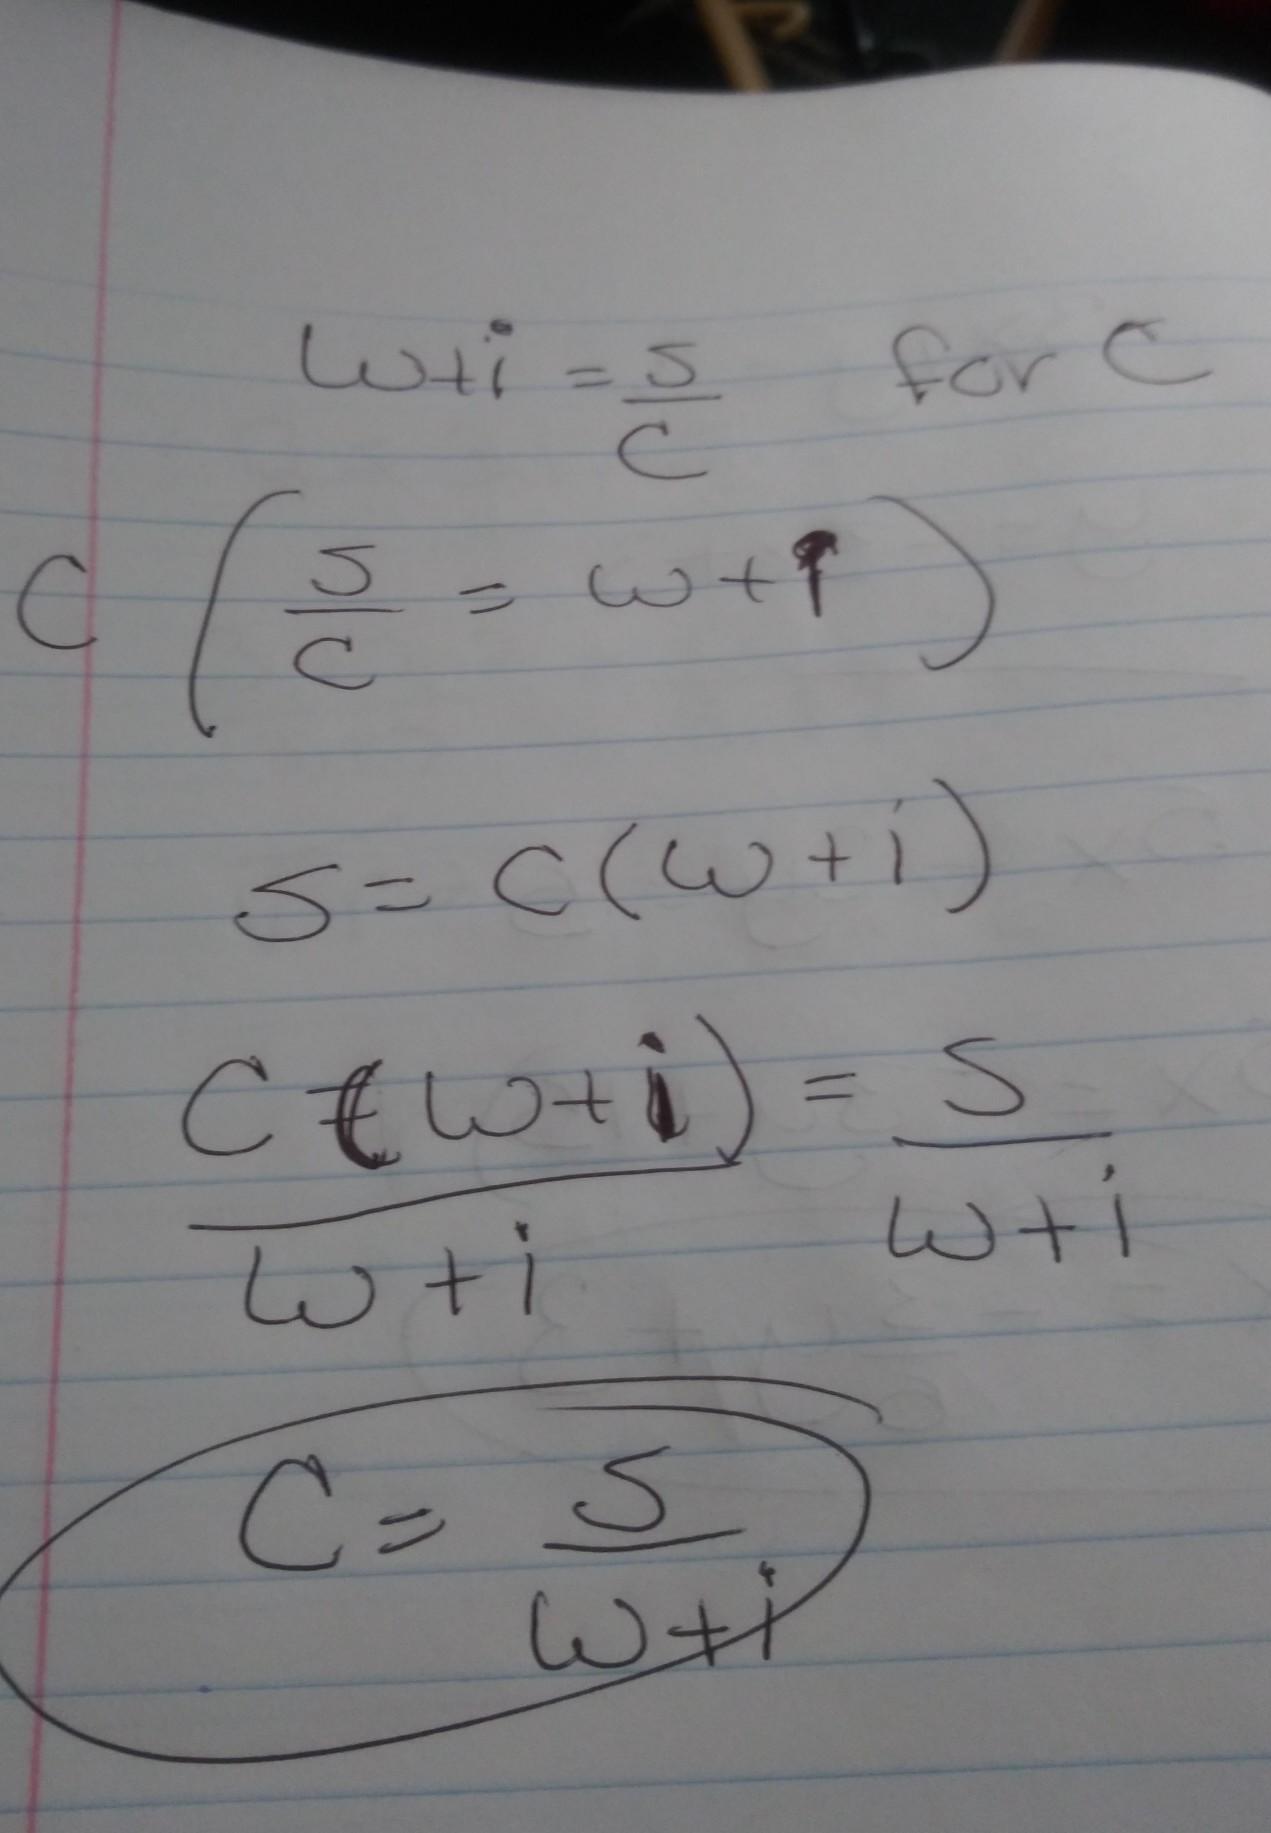 w+i = s/c for c
c (s/c = w+i)
s = c(w+i)
c(w+i)/w+i = s/w+i
c = s/w+i